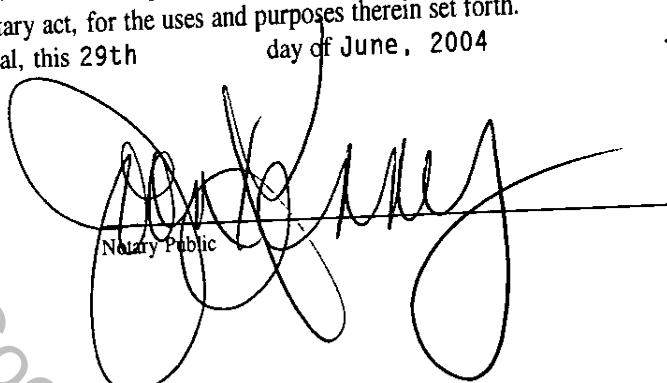 tary act, for the uses and purposes therein set forth.
al, this 29th day of June, 2004
Notary Public